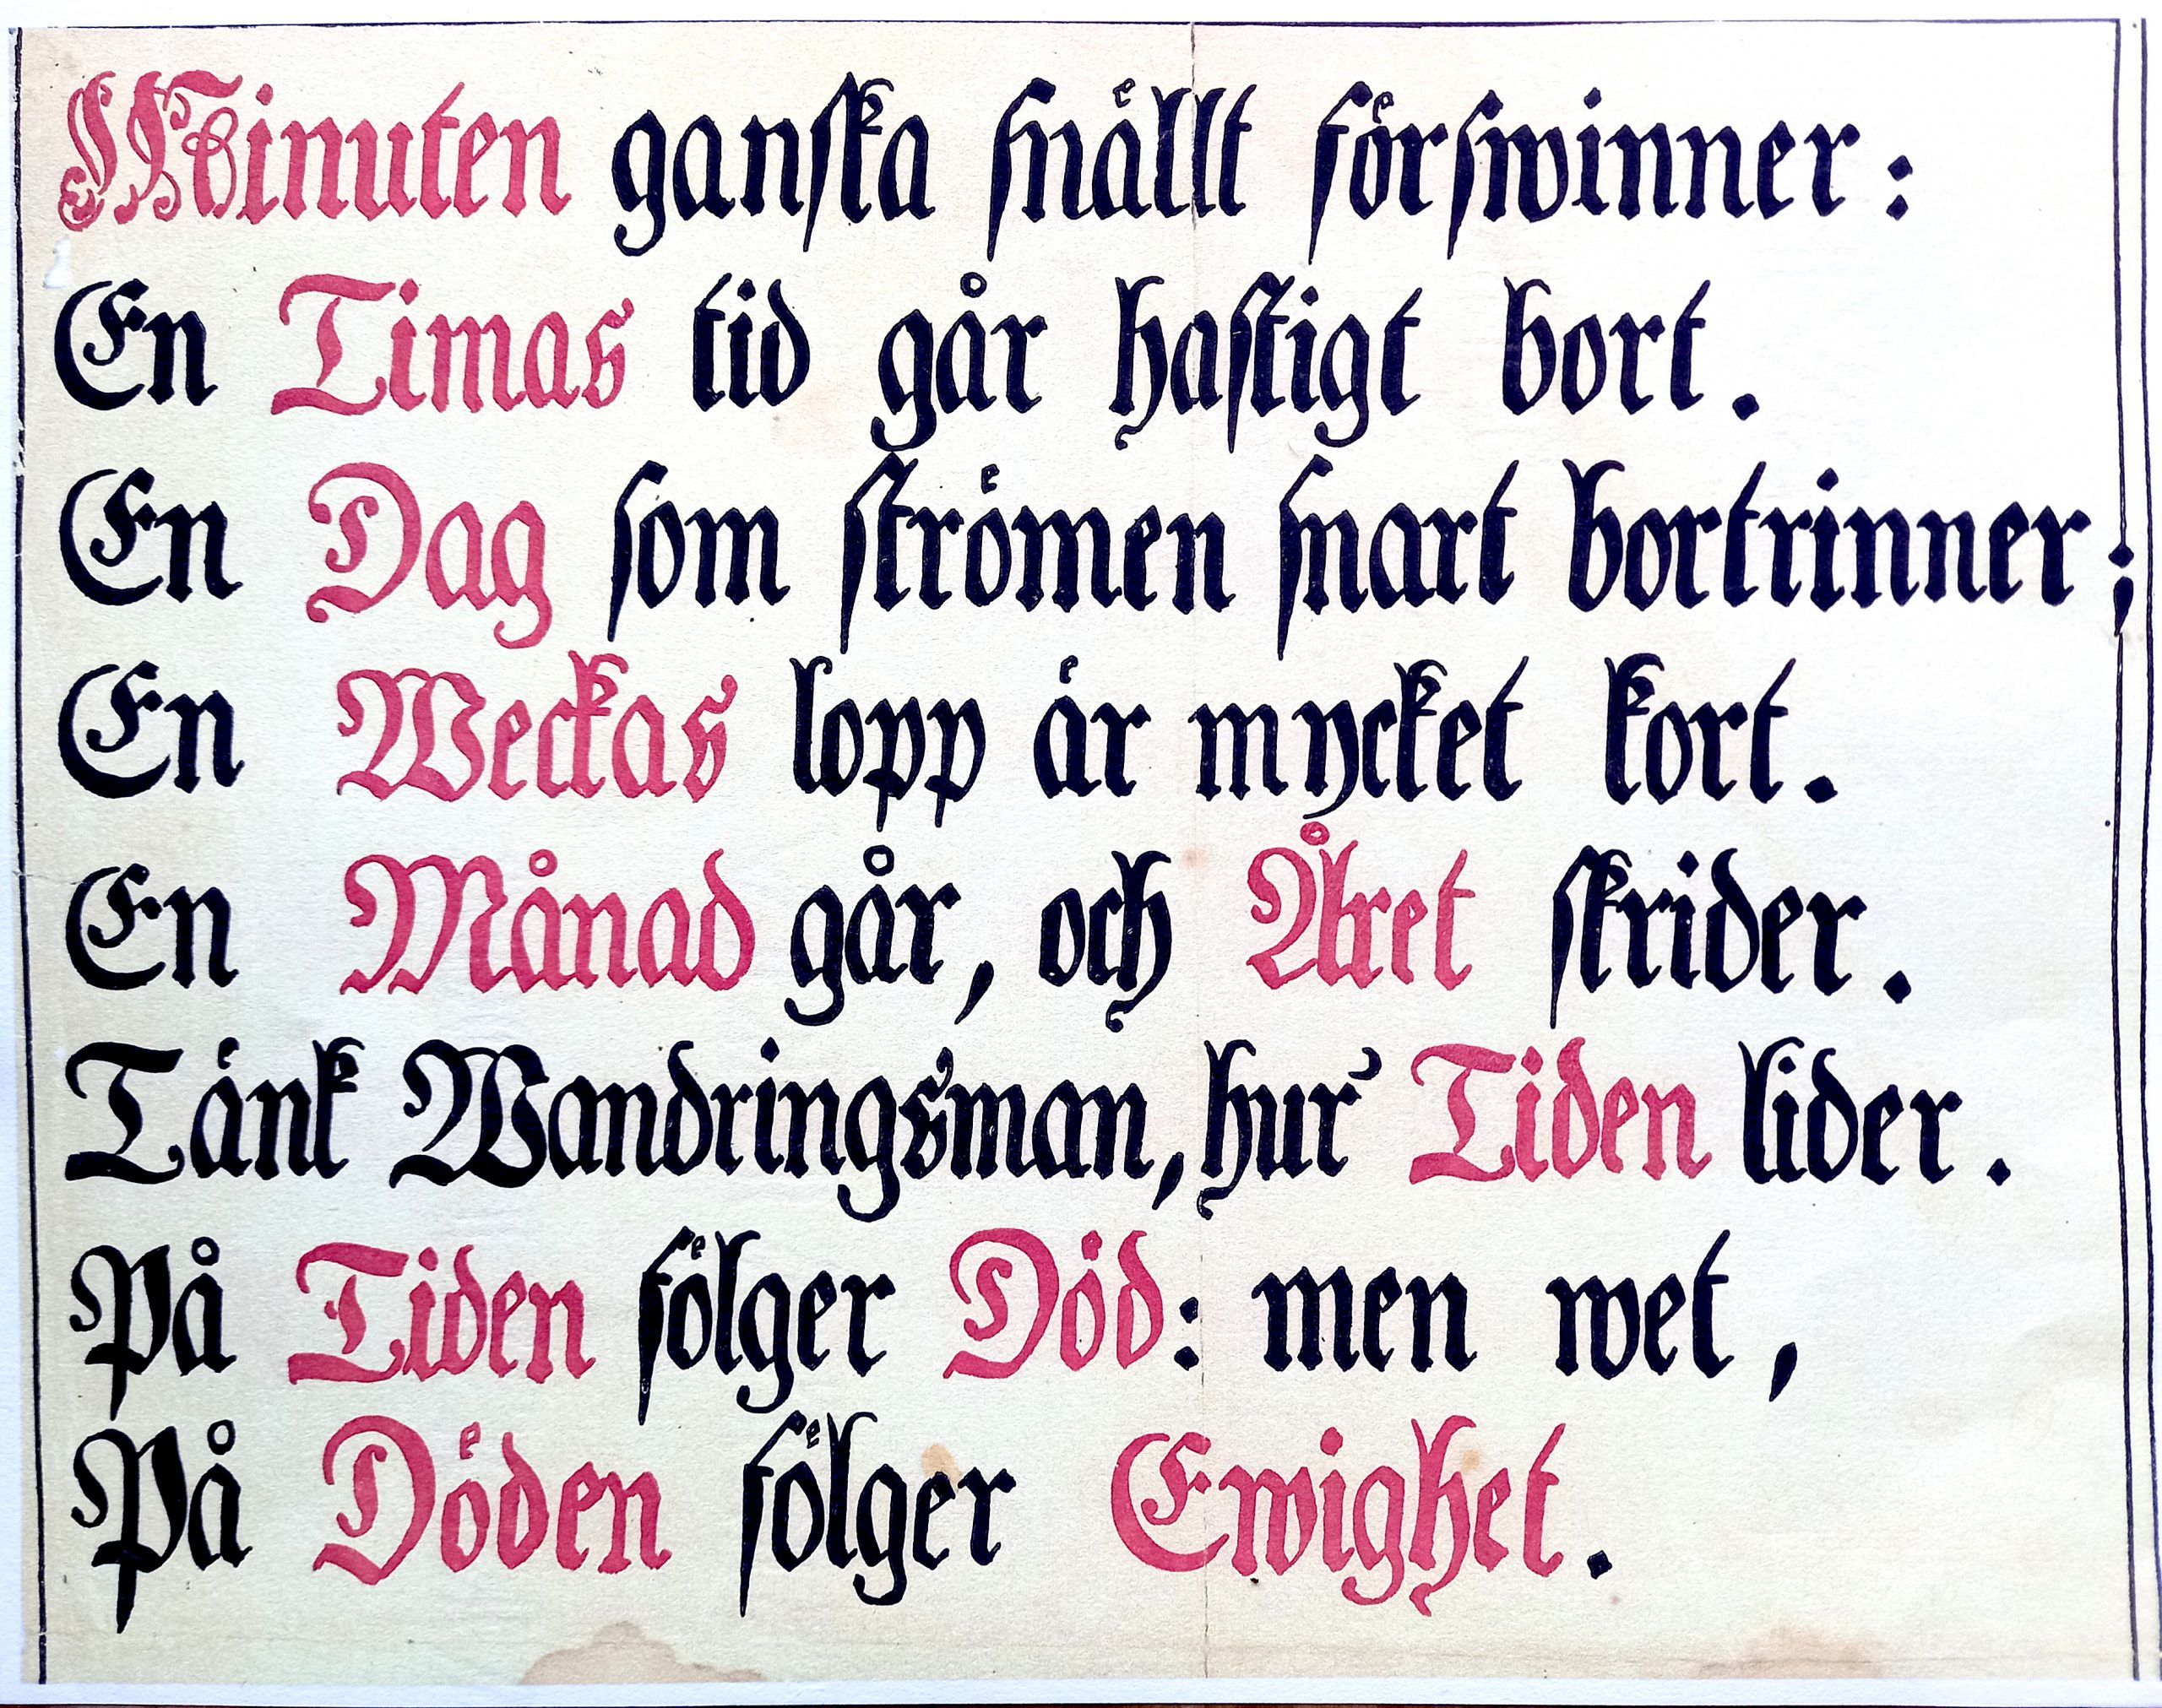 Minuten ganska snällt förswinner:
En Timas tid går hastigt bort.
En Dag som strömen snart bortrinner;
En Weckas lopp är mycket kort.
En Månad går, och Året skrider.
Tänk Wandringsman, hur Tiden lider.
På Tiden följer Död: men wet,
På Döden fölger Ewighet.